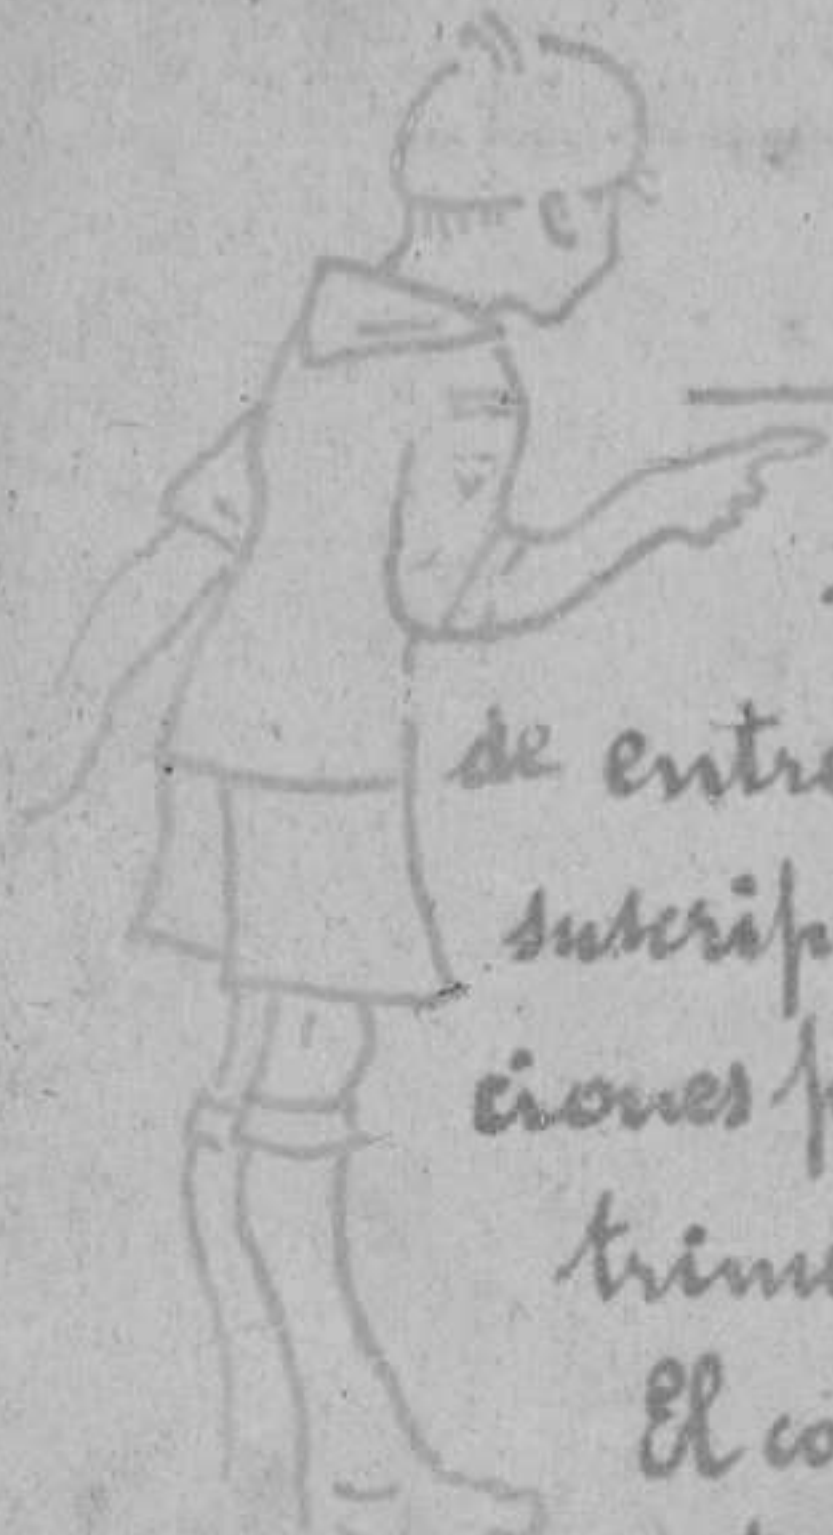 de entre
suscrip
ciones p
trime
El co